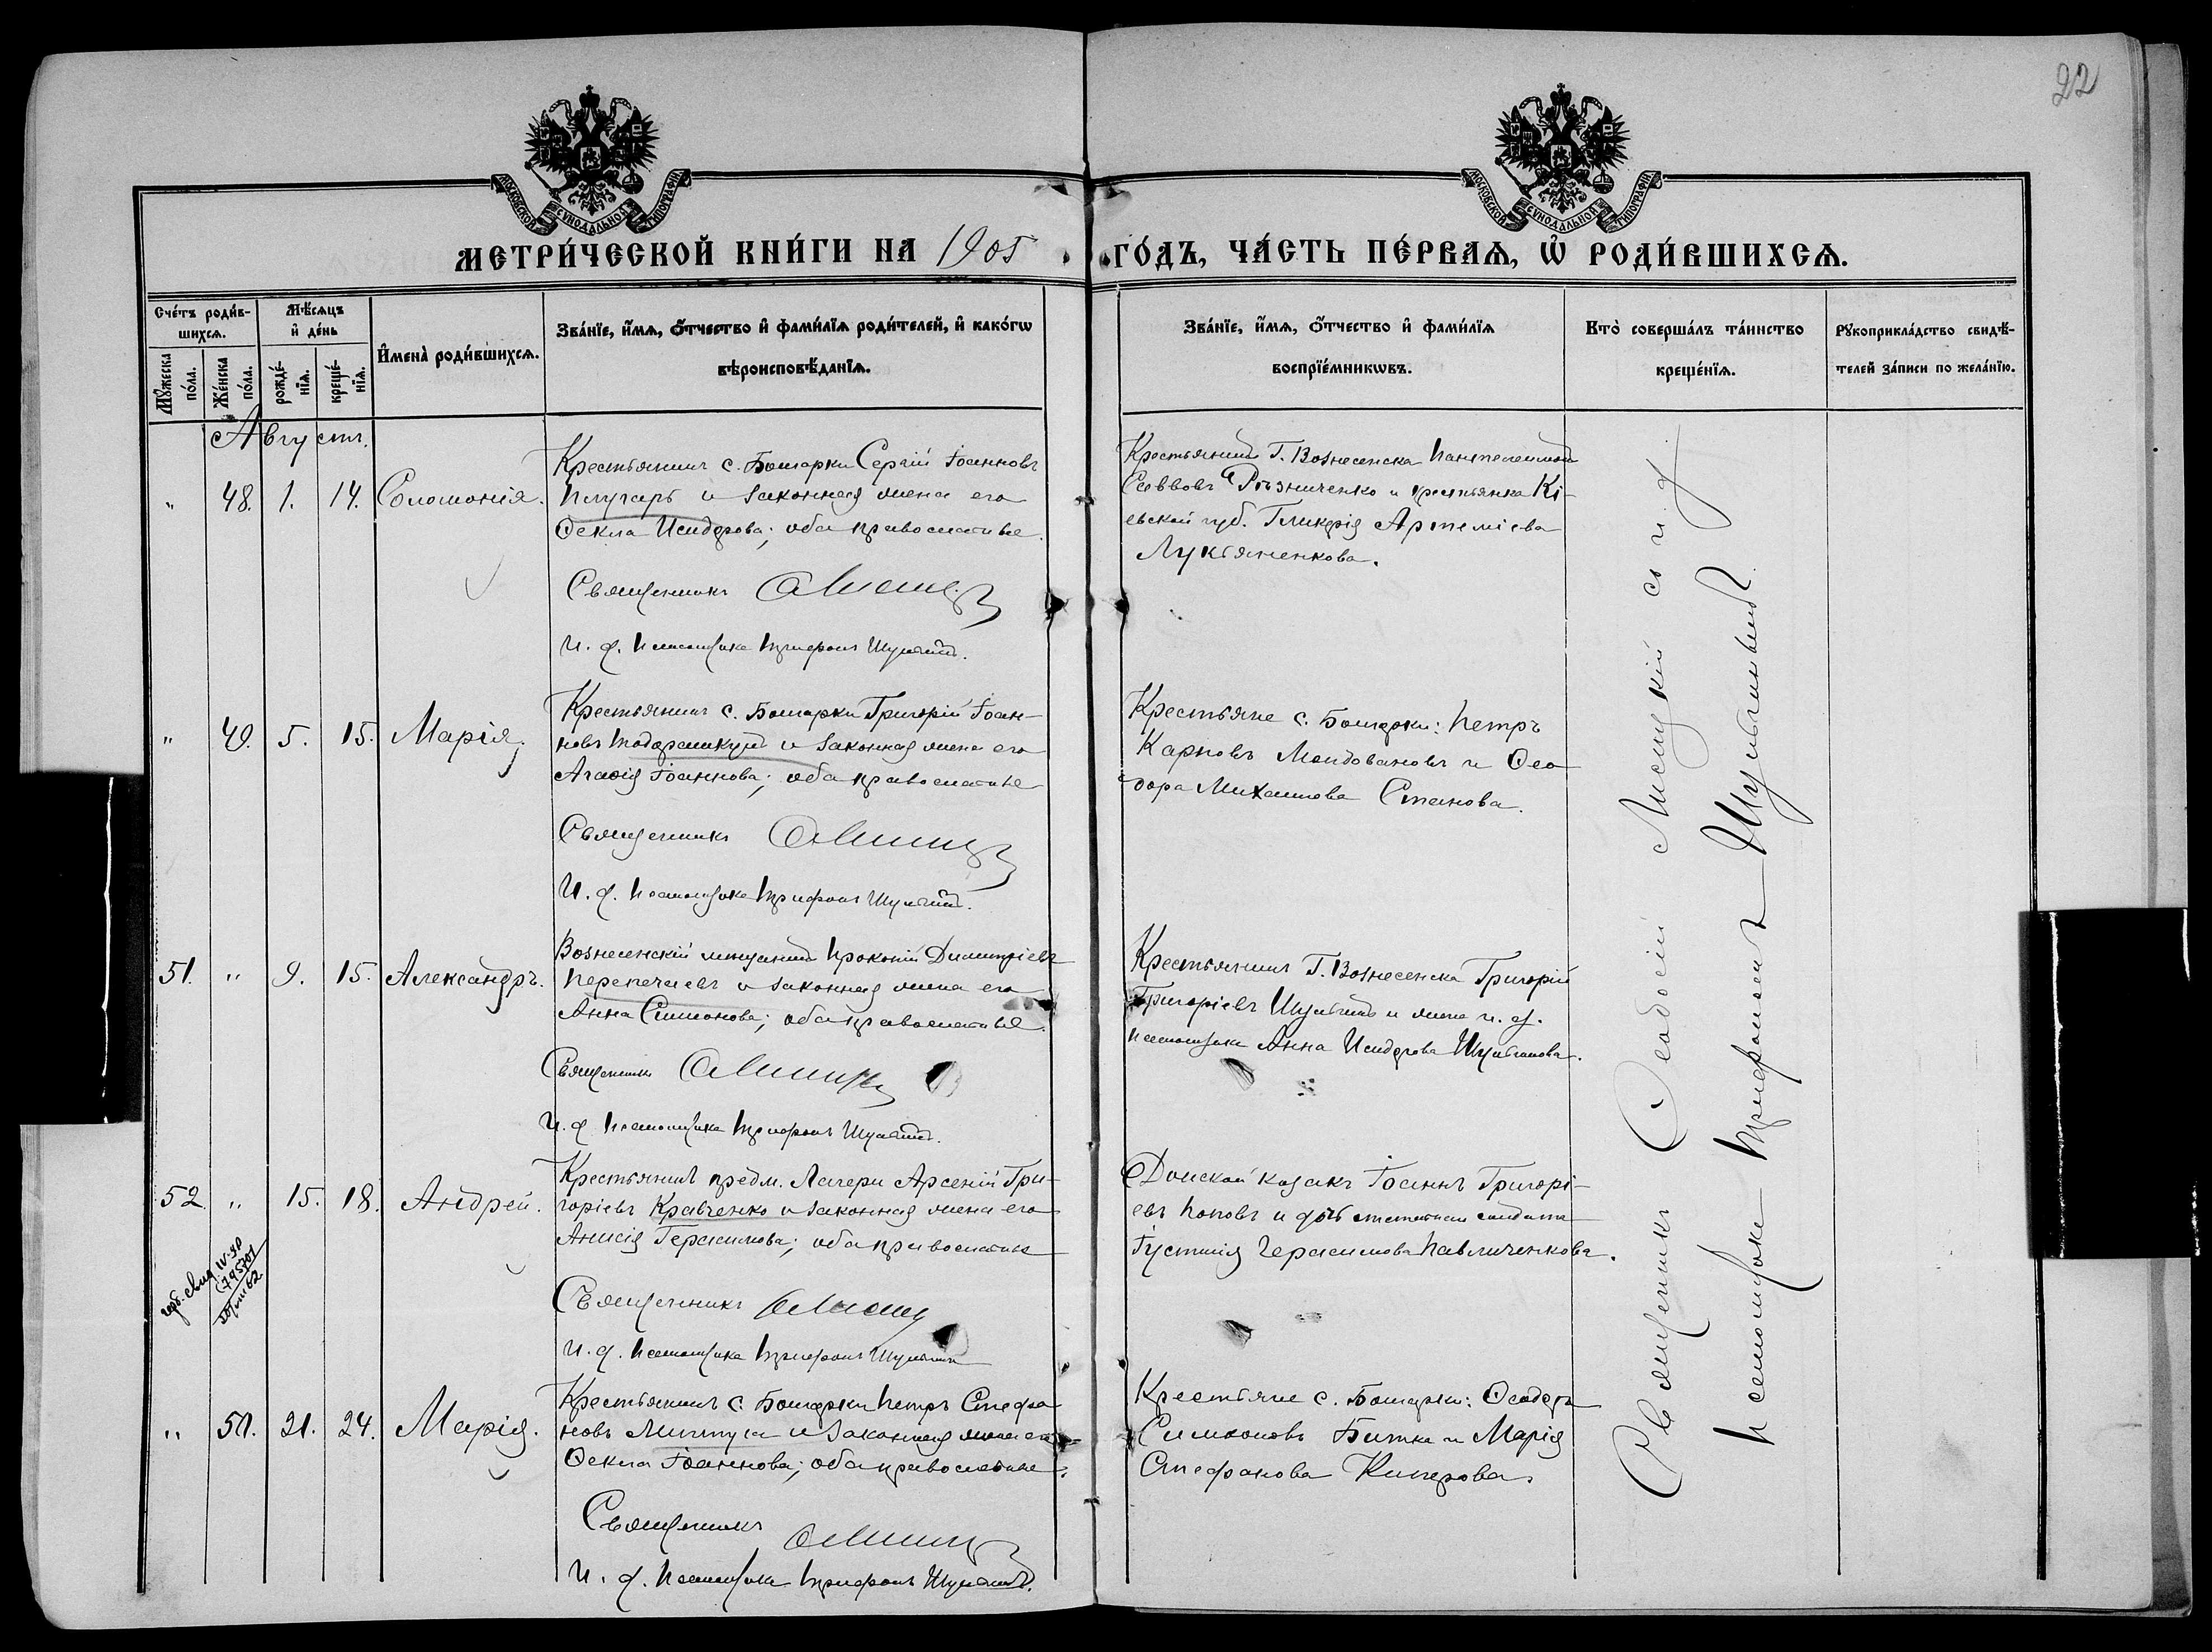 22
МОСКОВСКОЙ СѴНОДАЛЬНОЙ ТИПОГРАФІИ
МОСКОВСКОЙ СѴНОДАЛЬНОЙ ТИПОГРАФІИ
МЕТРИ́ЧЕСКОЙ КНИ́ГИ НА 1905 ГО́ДЪ, ЧА́СТЬ ПЕ́РВАѦ, Ѡ҆ РОДИ́ВШИХСѦ.
Сче́тъ роди́в-
шихсѧ.
Мꙋ́жеска по́ла.
Же́нска по́ла.
Мѣ́сѧцъ
и҆ де́нь
рожде́-
нїѧ.
креще́-
нїѧ.
И҆мена̀ роди́вшихсѧ.
Зва́нїе, и҆́мѧ, ѻ҆́тчество и҆ фами́лїѧ роди́телей, и҆ како́гѡ
вѣроисповѣ́данїѧ.
Зва́нїе, и҆́мѧ, ѻ҆́тчество и҆ фами́лїѧ
воспрїе́мникѡвъ.
Кто̀ соверша́лъ та́инство
креще́нїѧ.
Рꙋкоприкла́дство свидѣ́-
телей за́писи по жела́нїю.
Августъ.
„ 48. 1. 14. Соломонія.
Крестьянинъ с. Болгарки Сергій Іоанновъ
Плугарь и законная жена его
Ѳекла Исидорова; оба православные.
Священникъ
И. д. псаломщика Трифонъ Шульгинъ.
Крестьянинъ г. Вознесенска Пантелеимонъ
Саввовъ Рѣзниченко и крестьянка Кі-
евской губ. Гликерія Артеміева
Лукьяненкова.
„ 49. 5. 15. Марія.
Крестьянинъ с. Болгарки Григорій Іоан-
новъ и законная жена его
Агаѳія Іоаннова; оба православные
Священникъ
И. д. псаломщика Трифонъ Шульгинъ.
Крестьяне с. Болгарки: Петръ
Карповъ Молдовановъ и Ѳео-
дора Михаилова Станова.
51. „ 9. 15. Александръ.
Вознесенскій мѣщанинъ Прокопій Димитріевъ
Перепечаевъ и законная жена его
Анна Симонова; оба православные.
Священникъ
И. д. псаломщика Трифонъ Шульгинъ.
Крестьянинъ г. Вознесенска Григорій
Григоріевъ Шульгинъ и жена и. д.
псаломщика Анна Исидорова Шульгинова.
52. „ 15. 18. Андрей.
Крестьянинъ предм. Лагери Арсеній Гри-
горіевъ Кравченко и законная жена его
Анисія Герасимова; оба православные
Священникъ
И. д. псаломщика Трифонъ Шульгинъ
Донской козакъ Іоаннъ Григорі-
евъ Поповъ и дочь солдата
Іустинія Герасимова Павличенкова.
„ 50. 21. 24. Марія.
Крестьянинъ с. Болгарки Петръ Стефа-
новъ и законная жена его
Ѳекла Іоаннова; оба православные.
Священникъ
И. д. псаломщика Трифонъ Шульгинъ.
Крестьяне с. Болгарки: Ѳеодоръ
Симоновъ Битка и Марія
Стефанова Киперова.
Священникъ Ѳеодосій Лисецкій съ и. д.
псаломщика Трифономъ Шульгинымъ.